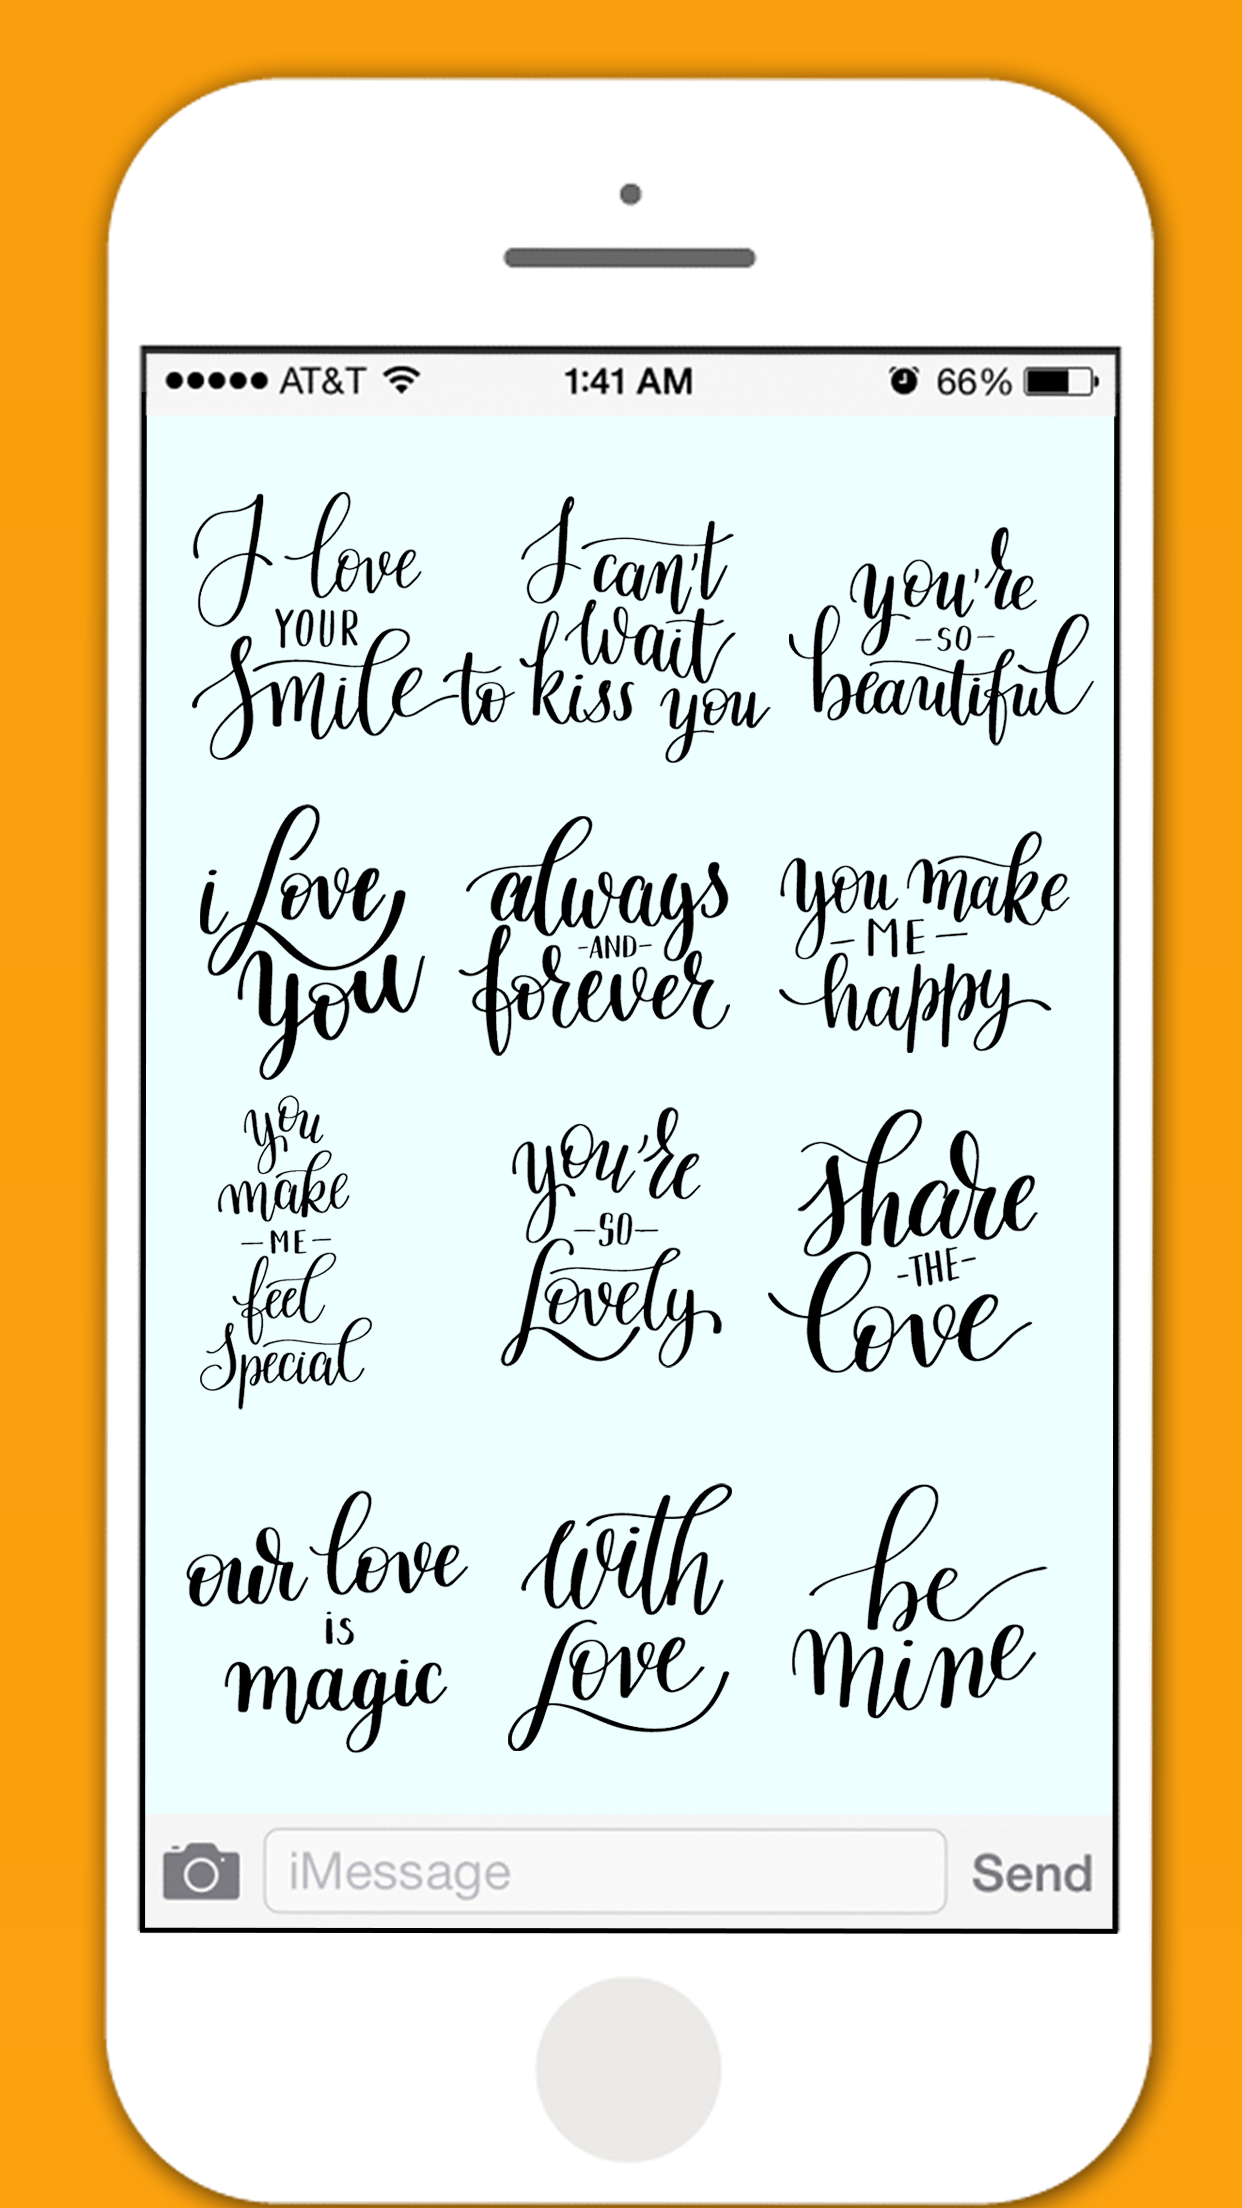 AT&T 1:41 AM 66%
I love
YOUR
Smile
I can't
wait
to kiss you
you're
-SO-
beautiful
i Love
you
always
-AND-
forever
you make
-ME-
happy
you
make
-ME-
feel
Special
you're
-SO-
Lovely
share
-THE-
love
our love
is
magic
with
Love
be
mine
iMessage Send